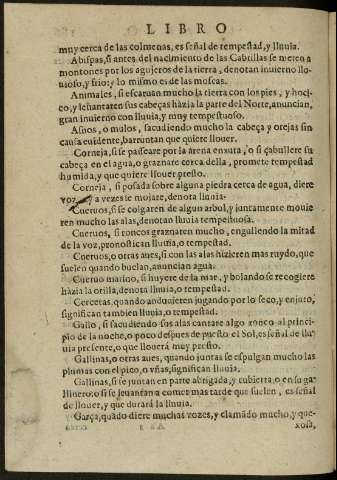 LIBRO
muy cerca de las colmenas, es señal de tempestad, y lluuia.
Abispas, si antes del nacimiento de las Cabrillas se meten a
montones por los agujeros de la tierra, denotan inuierno llu-
uioso, y frio: y lo mismo es de las moscas.
Animales, si escaruan mucho la tierra con los pies, y hoci-
co, y leuantaren sus cabeças hàzia la parte del Norte, anuncian,
gran inuierno con lluuia, y muy tempestuoso.
Asnos, o mulos, sacudiendo mucho la cabeça y orejas sin
causa euidente, barruntan que quiere llouer.
Corneja, si se passeare por la arena enxuta, o si çabullere su
cabeça en el agua, o graznare cerca della, promete tempestad
humida, y que quiere llouer presto.
Corneja, si posada sobre alguna piedra cerca de agua, diere
voz y a vezes se mojare, denota lluuia.
Cueruos, si se colgaren de algun arbol, y juntamente mouie
ren mucho las alas, denotan lluuia tempestuosa.
Cueruos, si roncos graznaren mucho, engullendo la mitad
de la voz, pronostican lluuia, o tempestad.
Cueruos, o otras aues, si con las alas hizieren mas ruydo, que
suelen quando buelan, anuncian agua.
Cueruo marino, si huyere de la mar, y bolando se recogiere
hàzia la orilla, denota lluuia, o tempestad.
Cercetas, quando anduuieren jugando por lo seco, y enjuto,
significan tambien lluuia, o tempestad.
Gallo, si sacudiendo sus alas cantare algo ronco al princi-
pio de la noche, o poco despues de puesto el Sol, es señal de llu-
uia presente, o que llouerà muy presto.
Gallinas, o otras aues, quando juntas se espulgan mucho las
plumas con el pico, o vñas, significan lluuia.
Gallinas, si se juntan en parte abrigada, y cubierta, o en su ga-
llinero: o si se leuantan a comer mas tarde que suelen, es señal
de llouer, y que durarà la lluuia.
Garça, quãdo diere muchas vozes, y clamãdo mucho, y que-
xosa,